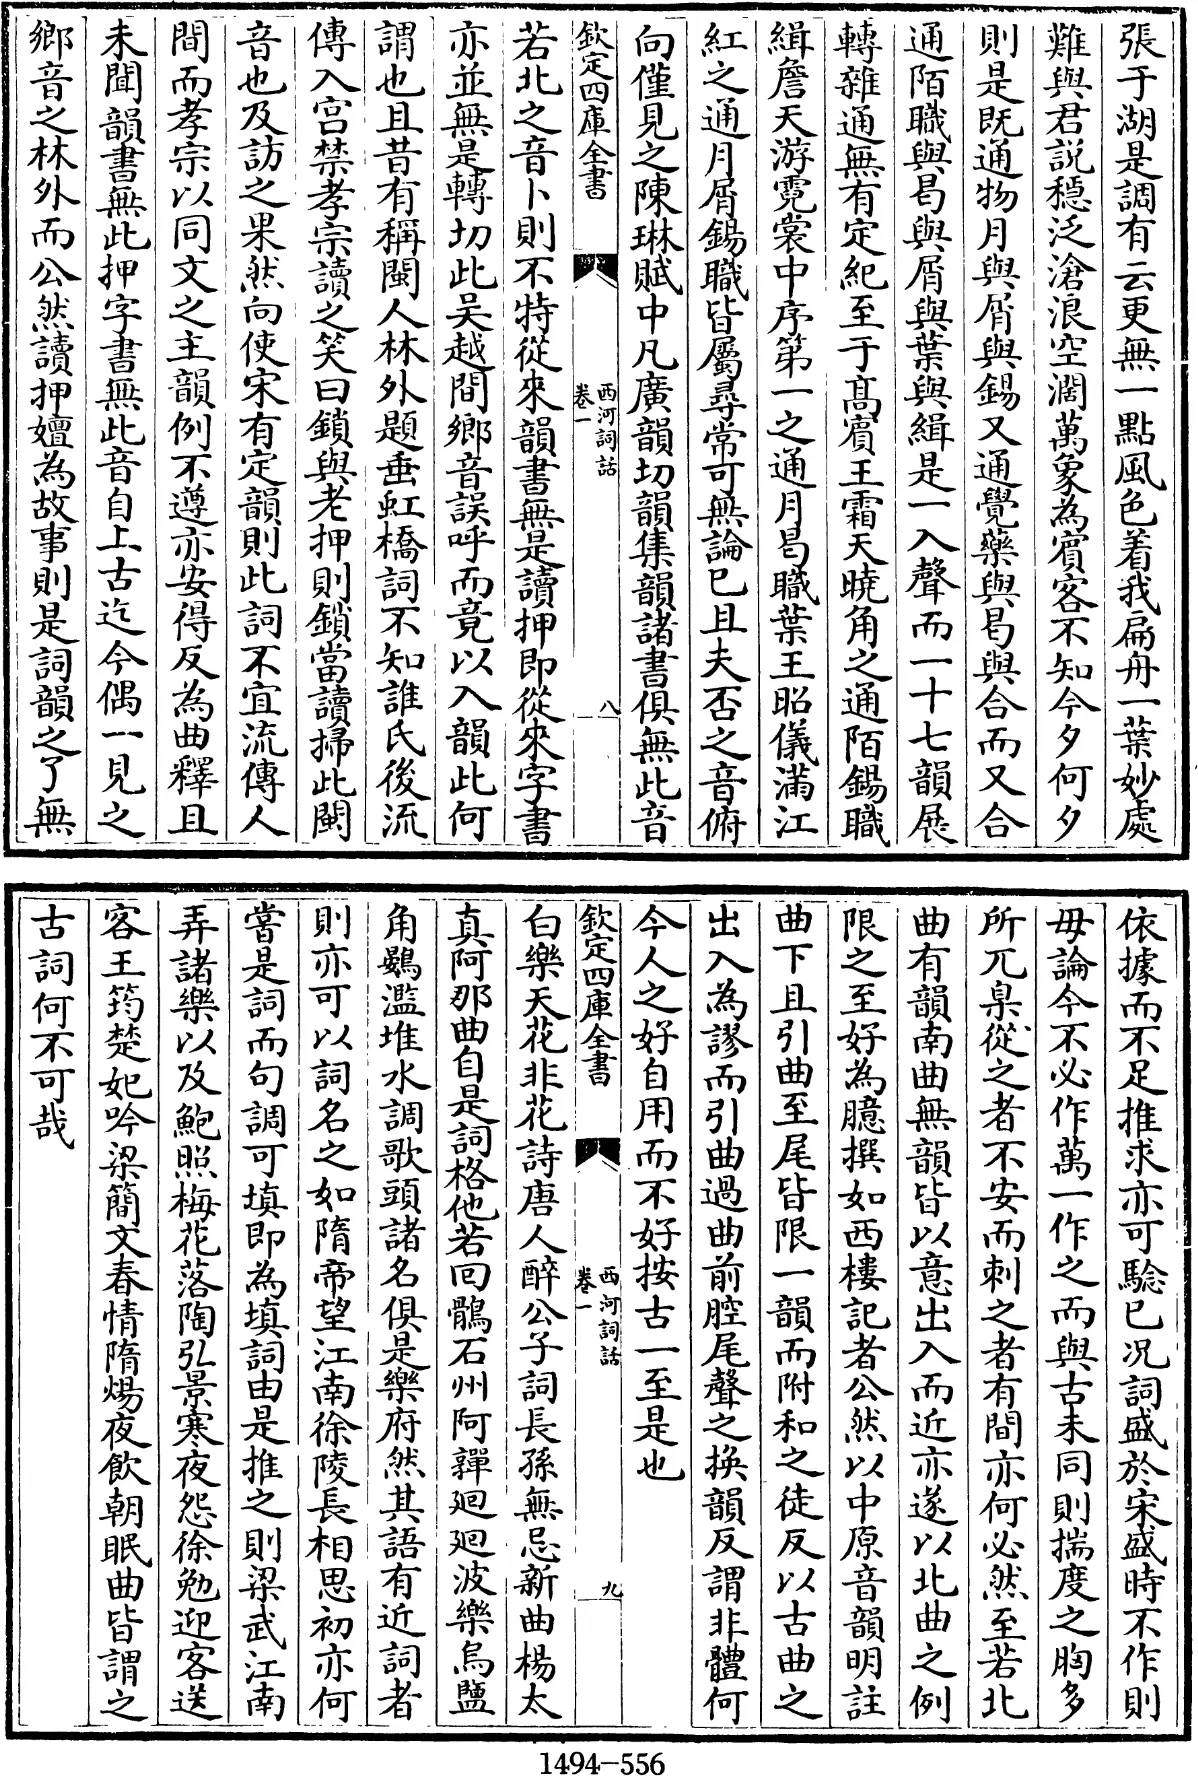 張于湖是調有云更無一點風色着我扁舟一葉妙處
難與君説穩泛滄浪空濶萬象為賓客不知今夕何夕
則是既通物月與屑與錫又通覺藥與曷與合而又合
通陌職與曷與屑與葉與緝是一入聲而一十七韻展
轉雜通無有定紀至于髙賓王霜天曉角之通陌錫職
緝詹天游霓裳中序第一之通月曷職葉王昭儀滿江
紅之通月屑錫職皆屬尋常可無論已且夫否之音俯
向僅見之陳琳賦中凡廣韻切韻集韻諸書俱無此音
欽定四庫全書
西河詞話
卷一
八
若北之音卜則不特從來韻書無是讀押即從來字書
亦並無是轉切此吴越間鄉音誤呼而竟以入韻此何
謂也且昔有稱閩人林外題垂虹橋詞不知誰氏後流
傳入宫禁孝宗讀之笑曰鎖與老押則鎖當讀掃此閩
音也及訪之果然向使宋有定韻則此詞不宜流傳人
間而孝宗以同文之主韻例不遵亦安得反為曲釋且
未聞韻書無此押字書無此音自上古迄今偶一見之
鄉音之林外而公然讀押嬗為故事則是詞韻之了無
依據而不足推求亦可驗已况詞盛於宋盛時不作則
毋論今不必作萬一作之而與古未同則揣度之胸多
所兀臬從之者不安而刺之者有間亦何必然至若北
曲有韻南曲無韻皆以意出入而近亦遂以北曲之例
限之至好為臆撰如西樓記者公然以中原音韻明註
曲下且引曲至尾皆限一韻而附和之徒反以古曲之
出入為謬而引曲過曲前腔尾聲之换韻反謂非體何
今人之好自用而不好按古一至是也
欽定四庫全書
西河詞話
卷一
九
白樂天花非花詩唐人醉公子詞長孫無忌新曲楊太
真阿那曲自是詞格他若囘鶻石州阿嚲廻廻波樂烏鹽
角鸂濫堆水調歌頭諸名俱是樂府然其語有近詞者
則亦可以詞名之如隋帝望江南徐陵長相思初亦何
嘗是詞而句調可填即為填詞由是推之則梁武江南
弄諸樂以及鮑照梅花落陶弘景寒夜怨徐勉迎客送
客王筠楚妃吟梁簡文春情隋煬夜飲朝眠曲皆謂之
古詞何不可哉
1494-556